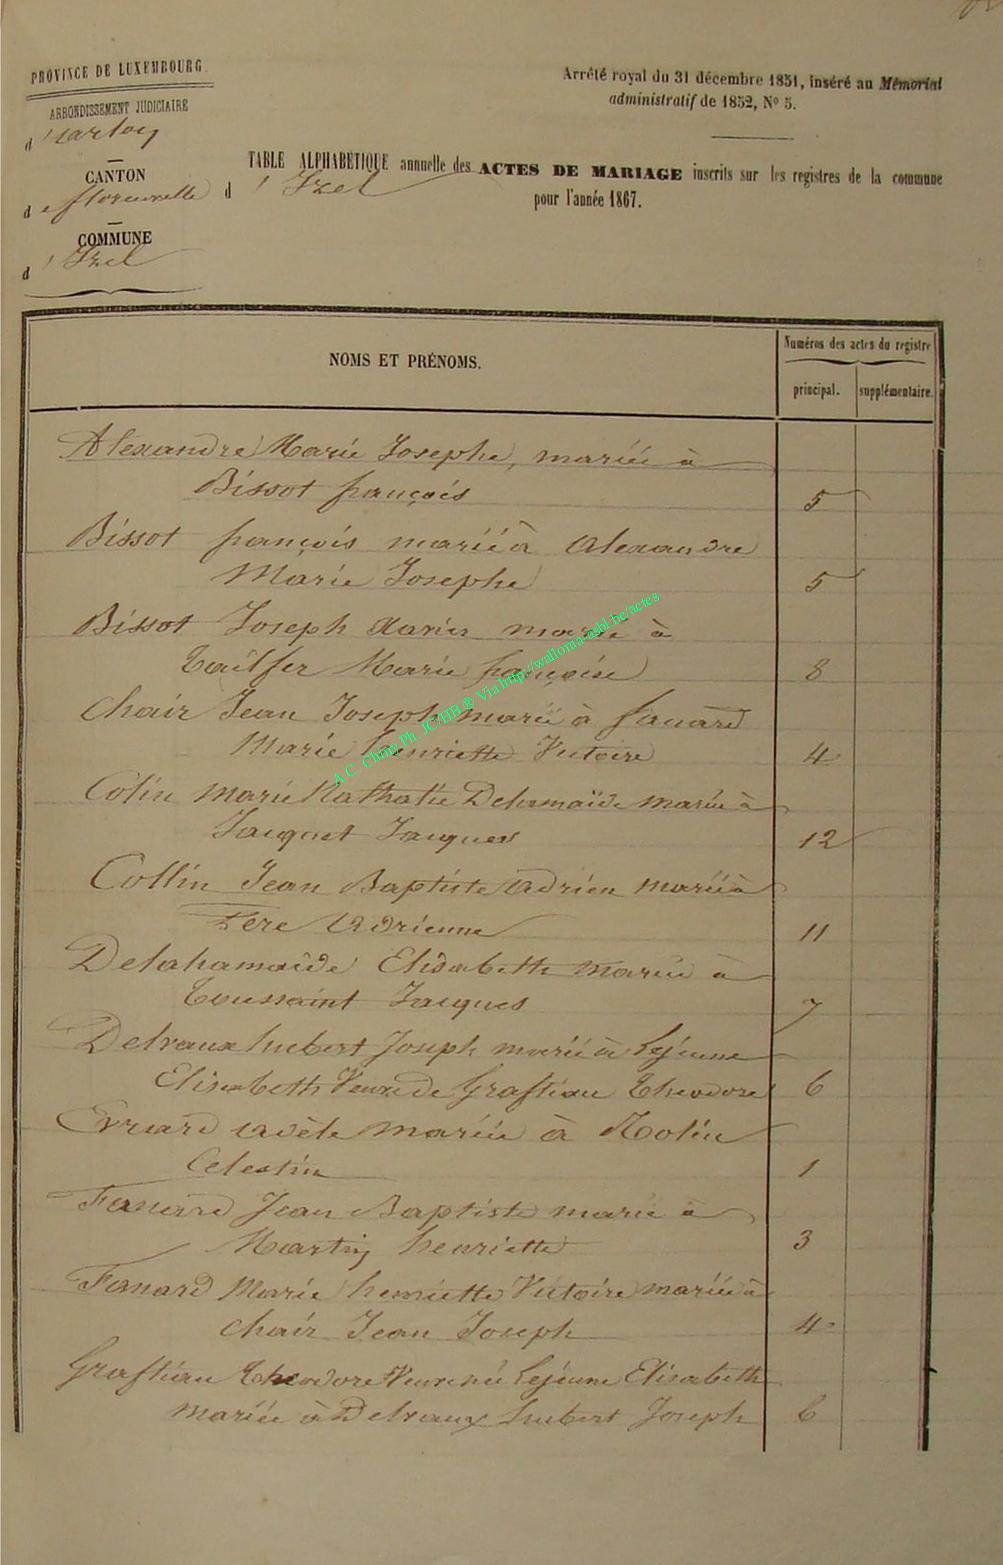 PROVINCE DE LUXEMBOURG
ARRONDISSEMENT JUDICIAIRE
d'arlon
CANTON
de florenville
COMMUNE
d'Izel
Arrêté royal du 31 décembre 1851, inséré au Mémorial
administratif de 1852, N° 5.
TABLE ALPHABÉTIQUE annuelle des ACTES DE MARIAGE inscrits sur les registres de la commune
d'Izel pour l'année 1867.
NOMS ET PRÉNOMS.
Numéros des actes du registre
principal. supplémentaire.
Alexandre Marie Josephe, mariée à
Bissot françois 5
Bissot françois marié à Alexandre
Marie Josephe 5
Bissot Joseph Xavier marié à
Tailfer Marie françoise 8
Chair Jean Joseph marié à fanard
Marie henriette Victoire 4
Colin Marie Nathalie mariée à
Jacquet Jacques 12
Collin Jean Baptiste Adrien marié à
Père Adrienne 11
Delahamaide Elisabeth mariée à
Toussaint Jacques 7
Delvaux hubert Joseph marié à Lejeune
Elisabeth Veuve de Graftiau Theodore 6
Evrard Adèle mariée à Rolin
Celestin 1
Fanard Jean Baptiste marié à
Martin henriette 3
Fanard Marie henriette Victoire mariée à
Chair Jean Joseph 4
Graftiau Theodore Veuve née Lejeune Elisabeth
mariée à Delvaux hubert Joseph 6
A.C. Chiny Ph. JC/HB® Via http://walloma-asbl.be/actes